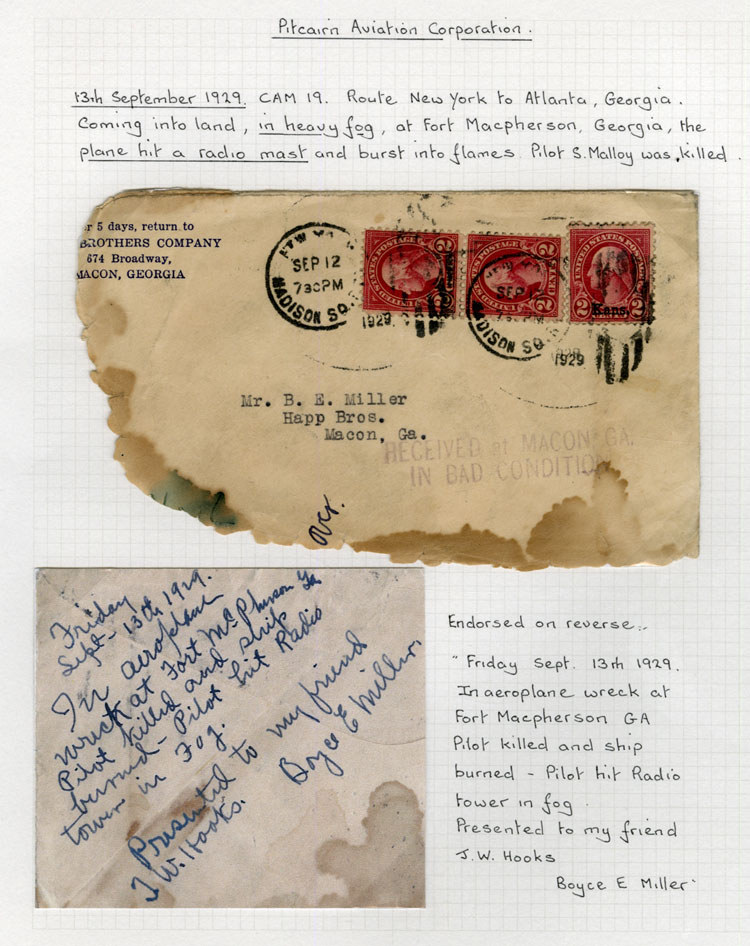 Pitcairn Aviation Corporation.
13th September 1929. CAM 19. Route New York to Atlanta, Georgia.
Coming into land, in heavy fog, at Fort Macpherson, Georgia, the
plane hit a radio mast and burst into flames. Pilot S. Malloy was killed.
5 days, return to
BROTHERS COMPANY
674 Broadway,
MACON, GEORGIA
SEP 12
730PM
MADISON SQ.
1929
UNITED STATES POSTAGE
2 CENTS 2
UNITED STATES POSTAGE
2 CENTS 2
SEP
MADISON SQ.
1929
UNITED STATES POSTAGE
Kans.
2 2
Mr. B. E. Miller
Happ Bros.
Macon, Ga.
RECEIVED at MACON, GA.
IN BAD CONDITION
over.
Friday
Sept- 13th 1929.
In aeroplane
wreck at Fort McPherson Ga
Pilot killed and ship
burned - Pilot hit Radio
tower in Fog.
Presented to my friend
J.W. Hooks.
Boyce E Miller.
Endorsed on reverse:-
"Friday Sept. 13th 1929.
In aeroplane wreck at
Fort Macpherson GA
Pilot killed and ship
burned - Pilot hit Radio
tower in fog.
Presented to my friend
J.W. Hooks
Boyce E Miller"